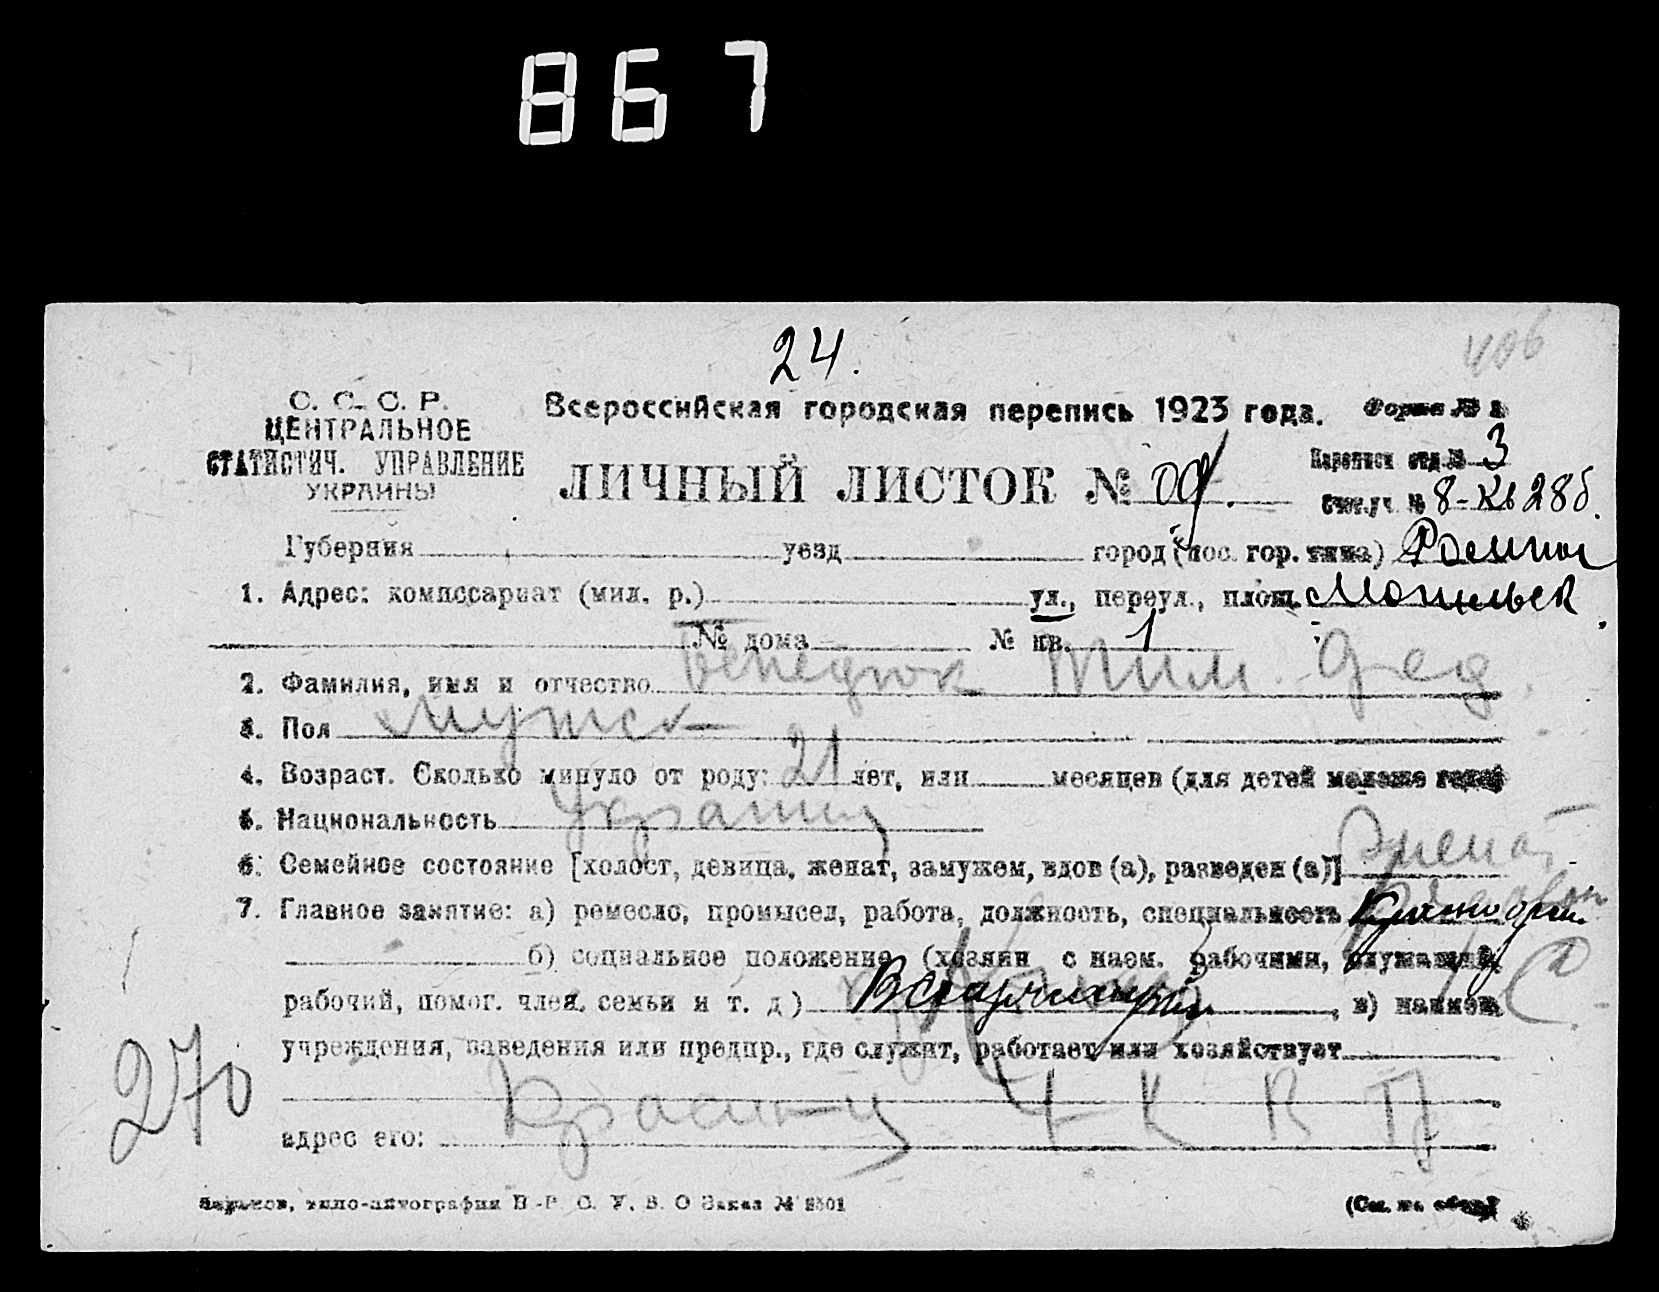 867
24.
406
С. С. С. Р.
ЦЕНТРАЛЬНОЕ
СТАТИСТИЧ. УПРАВЛЕНИЕ
УКРАИНЫ
Всероссийская городская перепись 1923 года.
Форма №
ЛИЧНЫЙ ЛИСТОК №
Переписн отд. № 3
Счет.уч. № 8-Кв 28б.
Губерния уезд город (пос. гор. типа) Ромны
1. Адрес: комиссариат (мил. р.) ул., переул., площ.
№ дома № кв. 1
2. Фамилия, имя и отчество Тим Фед
3. Пол мужск
4. Возраст. Сколько минуло от роду: 21 лет, или месяцев (для детей моложе года)
5. Национальность Украинц
6. Семейное состояние [холост, девица, женат, замужем, вдов (а), разведен (а)] Женат
7. Главное занятие: а) ремесло, промысел, работа, должность, специальность
б) социальное положение (хозяин с наем. рабочими, служащий,
рабочий, помог. член. семьи и т. д.) , в) наимен.
учреждения, заведения или предпр., где служит, работает или хозяйствует
адрес его:
270
Харьков, типо-литография В.-Р. С. У. В. О Заказ №
(См. на обор.)